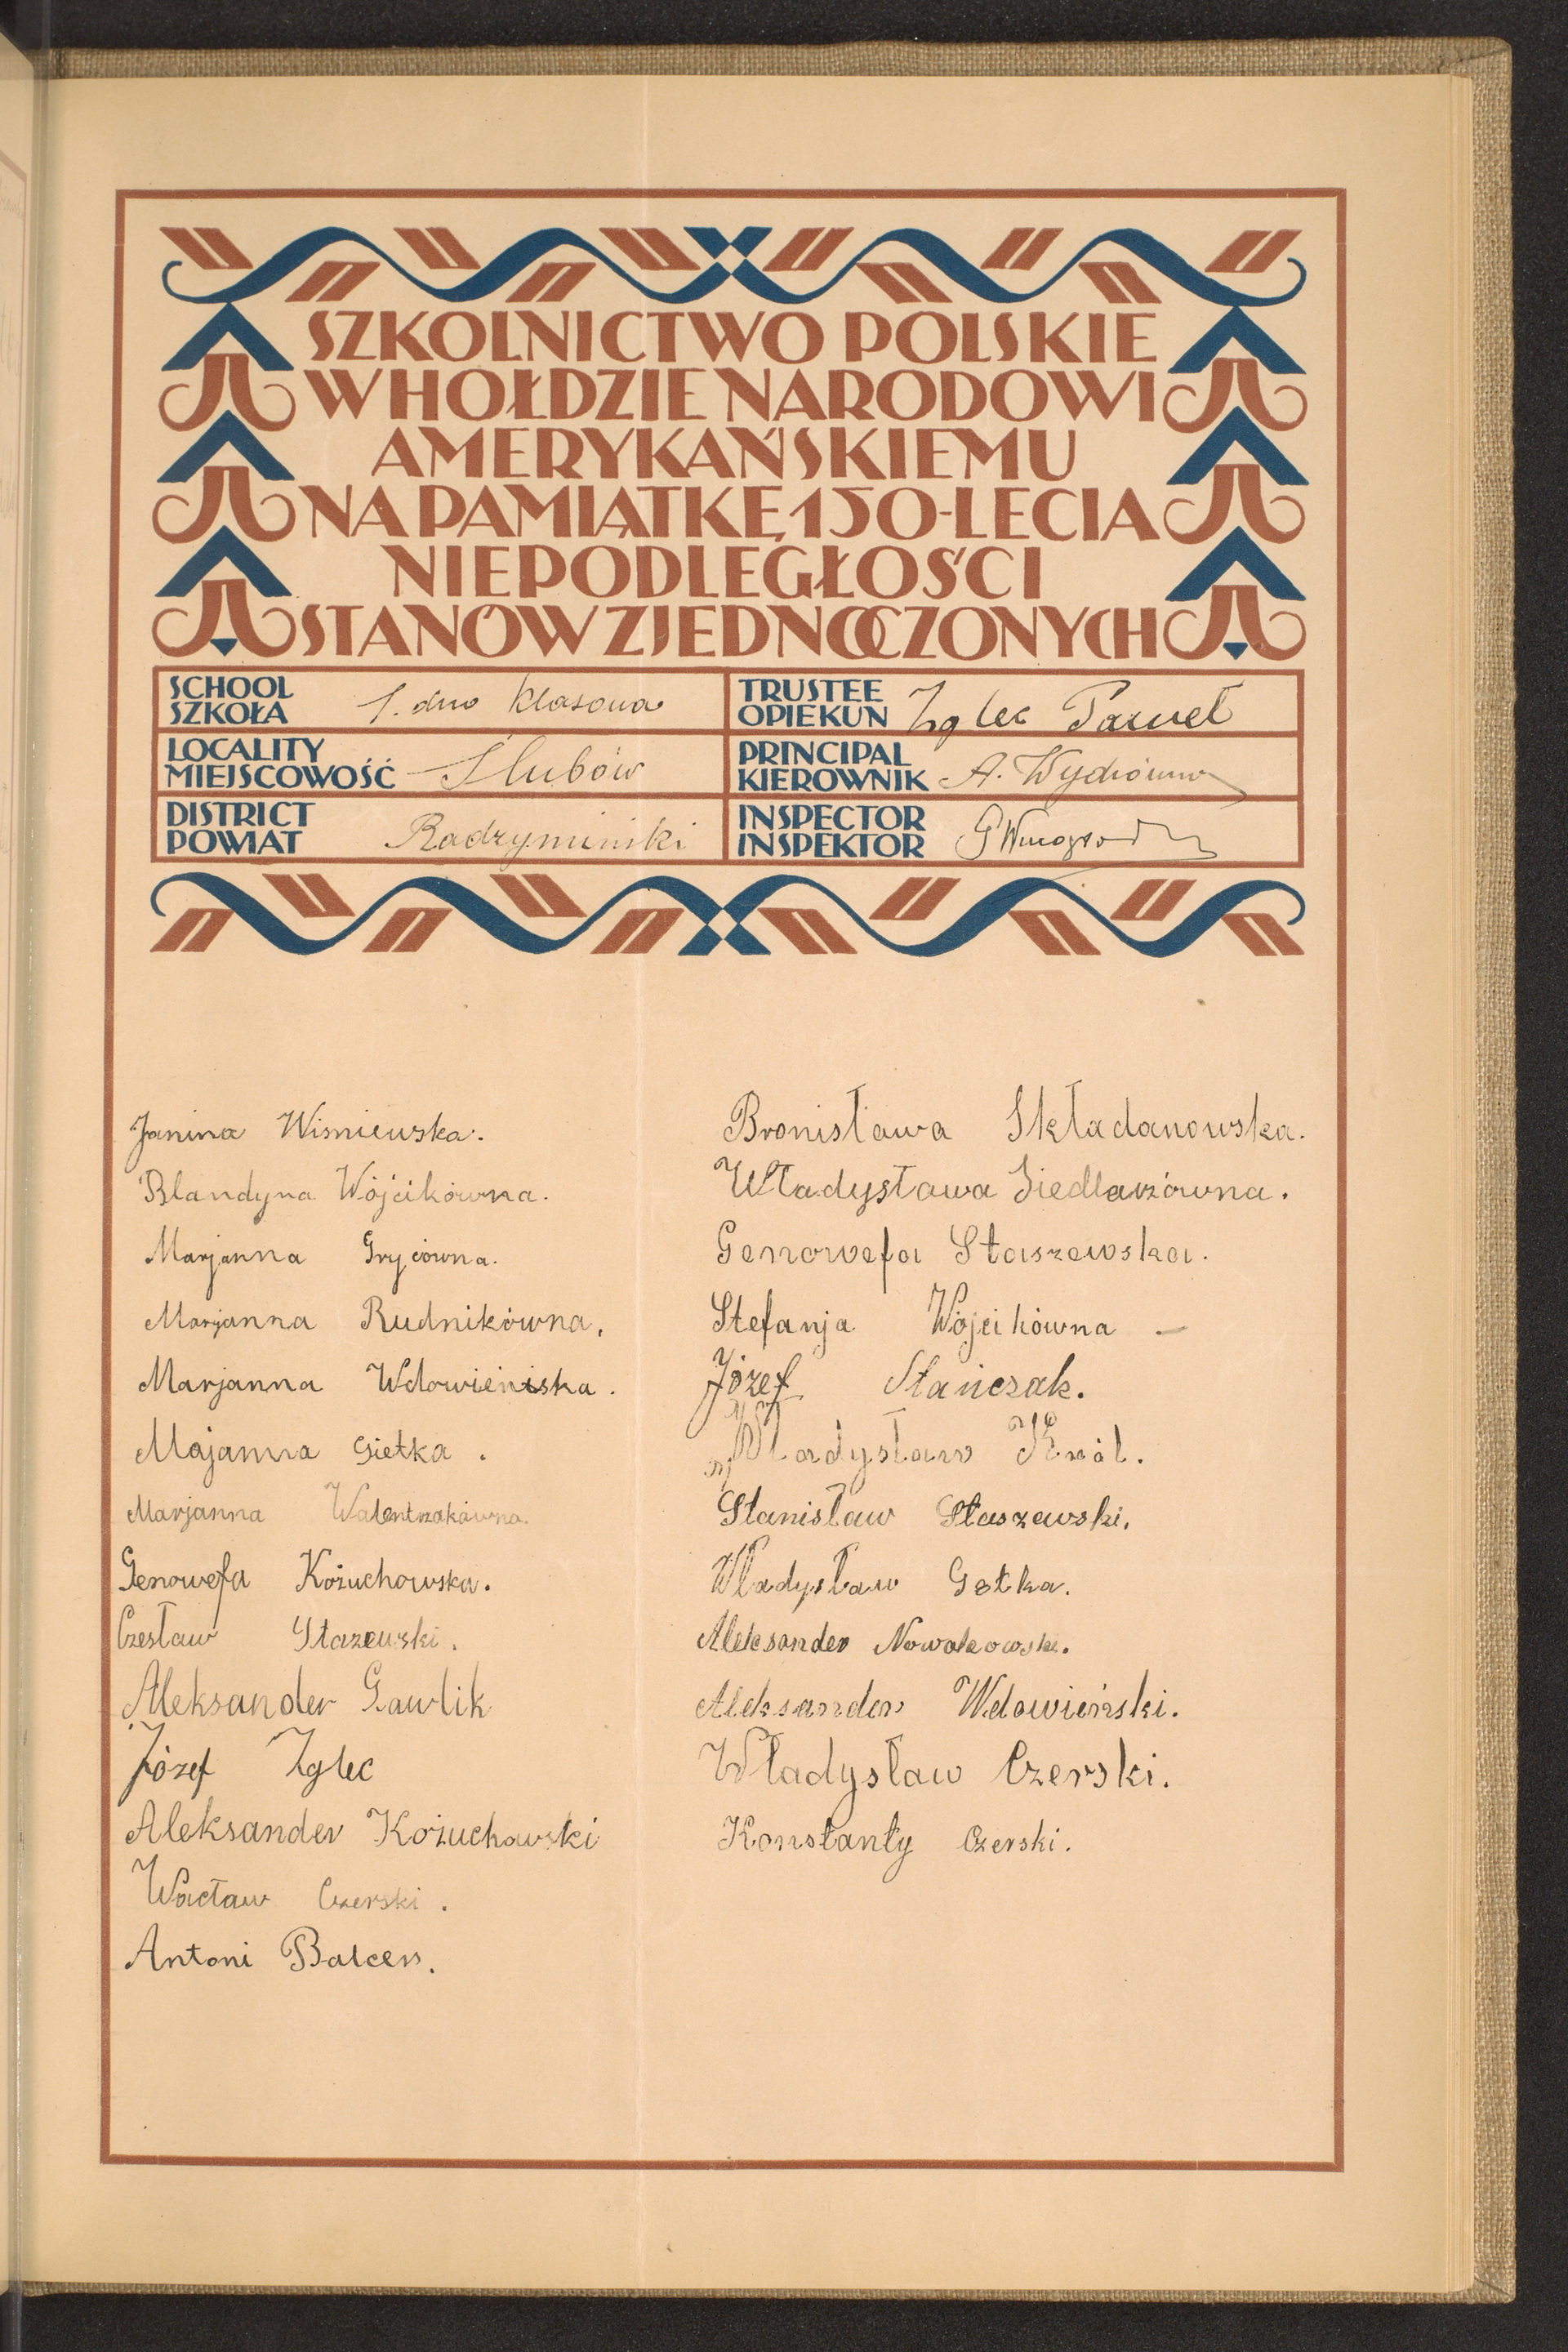 SZKOLNICTWO POLSKIE
W HOŁDZIE NARODOWI
AMERYKAŃSKIEMU
NA PAMIĄTKĘ 150-LECIA
NIEPODLEGŁOŚCI
STANÓW ZJEDNOCZONYCH
SCHOOL
SZKOŁA 1. dno klasowa
TRUSTEE
OPIEKUN Zglec Paweł
LOCALITY
MIEJSCOWOŚĆ Ślubów
PRINCIPAL
KIEROWNIK A.
DISTRICT
POWIAT Radzymiński
INSPECTOR
INSPEKTOR
Janina Wisniewska.
Blandyna Wójcikówna.
Marjanna Grycówna.
Marjanna Rudnikówna.
Marjanna Wdowieńiska.
Majanna Gietka.
Marjanna Walentzakówna.
Genowefa Kożuchowska.
Czesław Stazewski.
Aleksander Gawlik
Józef Zglec
Aleksander Kożuchowski
Wacław Czerski.
Antoni Balcer.
Bronisława Składanowska.
Władysława Siedlarzówna.
Genowefa Staszewska.
Stefanja Wójcikówna –
Józef Stańczak.
Władysław Król.
Stanisław Staszewski.
Władysław Getka.
Aleksander Nowakowski.
Aleksander Wdowieński.
Władysław Czerski.
Konstanty Czerski.